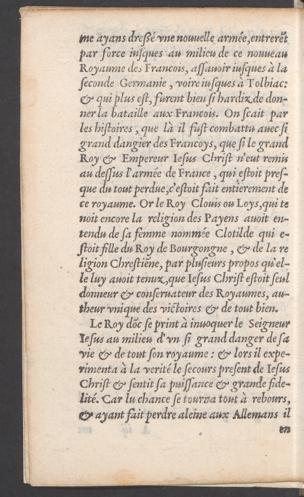 me ayans dreßé vne nouuelle armée, entrerẽt
par force iusques au milieu de ce nouueau
Royaume des Francois, assauoir iusques à la
seconde Germanie, voire iusques à Tolbiac:
& qui plus est, furent bien si hardiz de don-
ner la bataille aux Francois. On sçait par
les histoires, que là il fust combattu auec si
grand dangier des Francoys, que si le grand
Roy & Empereur Iesus Christ n'eut remis
au dessus l'armée de France, qui estoit pres-
que du tout perdue, c'estoit fait entierement de
ce royaume. Or le Roy Clouis ou Loys, qui te
noit encore la religion des Payens auoit en-
tendu de sa femme nommée Clotilde qui e-
stoit fille du Roy de Bourgongne, & de la re
ligion Chrestiẽne, par plusieurs propos qu'el-
le luy auoit tenuz, que Iesus Christ estoit seul
donneur & conseruateur des Royaumes, au-
theur vnique des victoires & de tout bien.
Le Roy dõc se print à inuoquer le Seigneur
Iesus au milieu d'vn si grand danger de sa
vie & de tout son royaume: & lors il expe-
rimenta à la verité le secours present de Iesus
Christ & sentit sa puissance & grande fide-
lité. Car lu chance se tourna tout à rebours,
& ayant fait perdre aleine aux Allemans il
en